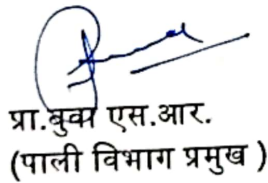 प्रा.बुवा एस.आर.
(पाली विभाग प्रमुख )